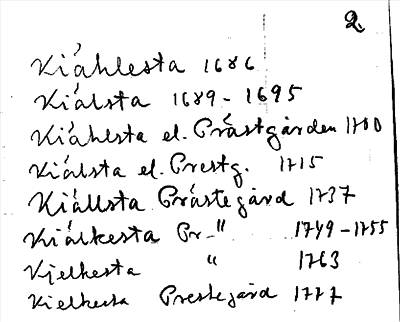 2.
Kiählesta 1686
Kiälsta 1689-1695
Kiählsta el. Prästgården 1700
Kiälsta el. Prestg. 1715
Kiällsta Prästegård 1737
Kiälkesta Pr-" 1749-1755
Kjelkesta " 1763
Kielkesta Prestegård 1777